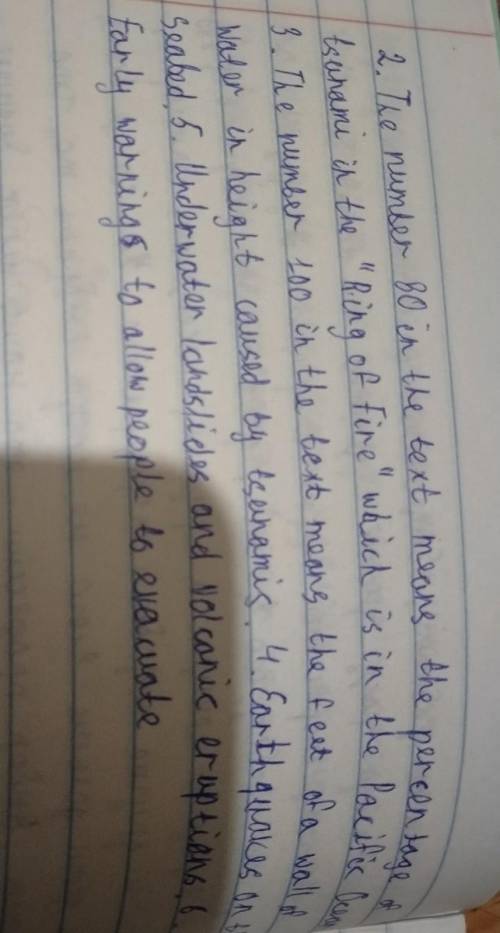 2. The number 80 in the text means the percentage of
tsunami in the "Ring of Fire" which is in the Pacific Ocean
3. The number 100 in the text means the feet of a wall of
water in height caused by tsunamis. 4. Earthquakes on
Seabed, 5. Underwater landslides and volcanic eruptions, 6.
Early warnings to allow people to evacuate